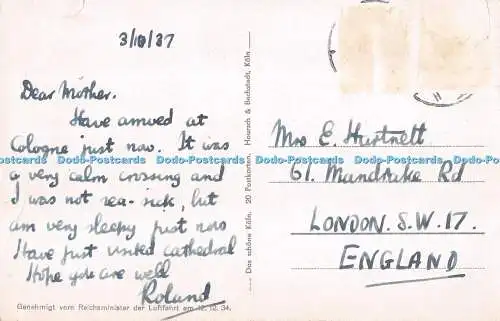 3/10/37
Dear Mother.
Have arrived at
Cologne just now. It was
a very calm crossing and
I was not sea-sick, but
am very sleepy just now
Have just visited cathedral
Hope you are well
Roland
Genehmigt vom Reichsminister der Luftfahrt am 12. 12. 34.
Das schöne Köln. 20 Postkarten. Hoursch & Bechstedt, Köln
Mrs E. Hurtnett
61. Mundrake Rd
LONDON. S.W.17.
ENGLAND
Dodo-Postcards Dodo-Postcards Dodo-Postcards Dodo-Postcards Dodo-Postcards Dodo-Postcards